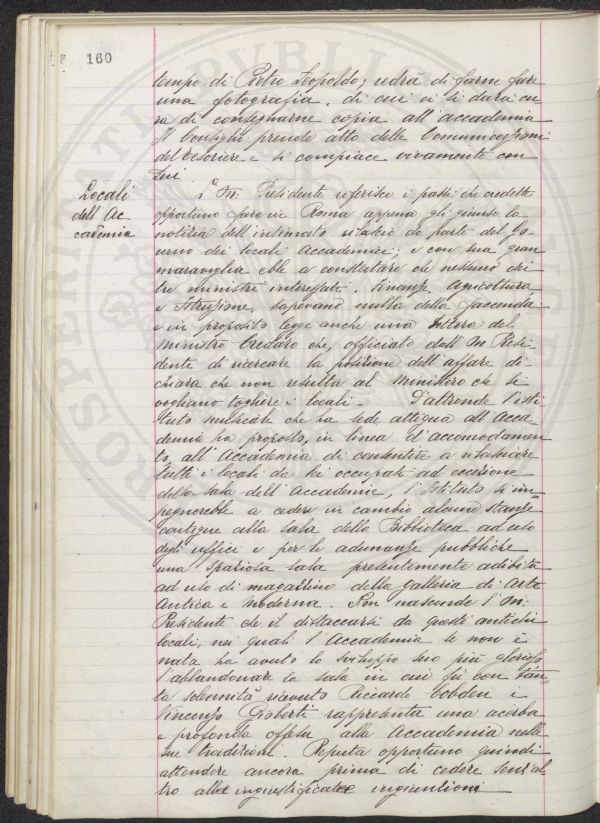 160
tempo di Pietro Leopoldo; vedrà di farne fare
una fotografia, di cui ci si darà cu
ra di consegnarne copia all'accademia
Il Consiglio prende atto delle Comunicazioni
del Tesoriere e si compiace vivamente con
Lui
Locali
dell'Ac
cademia
L'On. Presidente riferisce i passi che credette
opportuno fare in Roma appena gli giunse la
notizia dell'intimato sfratto da parte del Go
verno dei locali Accademici; e con sua gran
maraviglia ebbe a constatare che nessuno dei
tre ministri interessati, Finanze, Agricoltura
e Istruzione, sapevano nulla della faccenda
e in proposito legge anche una lettera del
Ministro Credaro che, officiato dall'On Presi-
dente di ricercare la posizione dell'affare di-
chiara che non resulta al Ministero che si
vogliano togliere i locali - D'altronde l'isti
tuto musicale che ha sede attigua all'Acca-
demia ha proposto, in linea d'accomodamen-
to, all'Accademia di consentire a rilasciare
tutti i locali da lei occupati ad eccezione
della sala dell'Accademia, l'Istituto si im-
pegnerebbe a cedere in cambio alcune stanze
contigue alla sala della Biblioteca ad uso
degli uffici e per le adunanze pubbliche
una spaziosa sala presentemente adibita
ad uso di magazzino della galleria di Arte
Antica e Moderna. Non nasconde l'On:
Presidente che il distaccarsi da questi antichi
locali, nei quali l'Accademia se non è
nata ha avuto lo sviluppo suo più glorioso
l'abbandonare la sala in cui fu con tan-
ta solennità ricevuto Riccardo Cobden e
Vincenzo Gioberti rappresenta una acerba
e profonda offesa alla Accademia nelle
sue tradizioni. Reputa opportuno quindi
attendere ancora prima di cedere senz'al
tro alle ingiustificate ingiunzioni